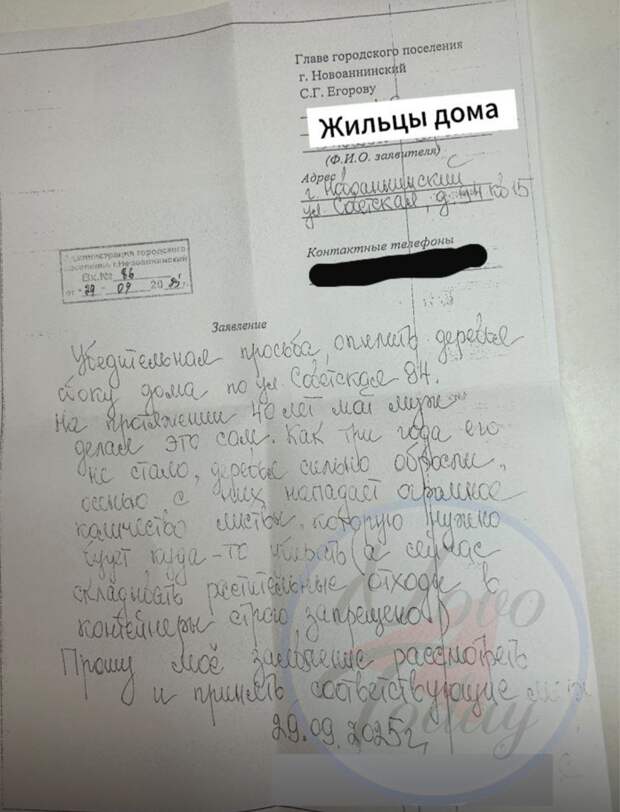 Главе городского поселения
г. Новоаннинский
С.Г. Егорову
Жильцы дома
(Ф.И.О. заявителя)
Адрес
г. Новоаннинский
ул. Советская, д. кв 15
Контактные телефоны
Администрация городского
поселения г.Новоаннинский
Вх.№ 86
от 29 09 20
Заявление
Убедительная просьба, опилить деревья
сбоку дома по ул. Советская 84.
На протяжении 40 лет мой муж
делал это сам. Как три года его
не стало, деревья сильно обросли,
осенью с них нападает огромное
количество листвы, которую нужно
будет куда-то убирать (а сейчас
складывать растительные отходы в
контейнеры строго запрещено)
Прошу моё заявление рассмотреть
и принять соответствующие
29.09.2025г.
Novo
Today